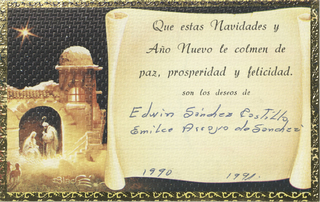 Que estas Navidades y
Año Nuevo le colmen de
paz, prosperidad y felicidad.
son los deseos de
Edwin Sánchez Castillo
Emilce Arroyo de Sánchez
1990 1991.